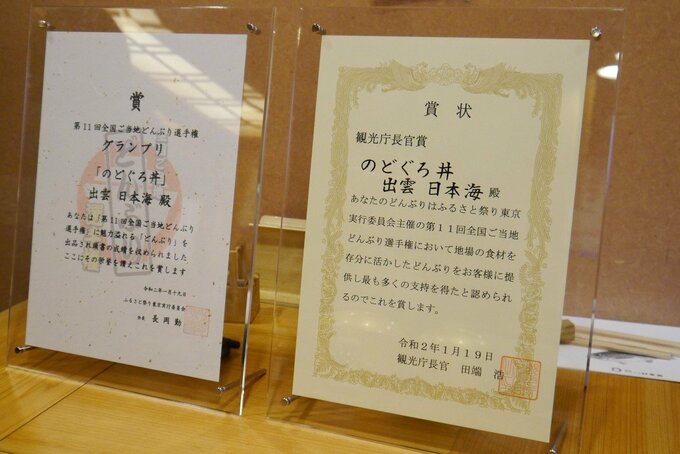 賞
第11回全国ご当地どんぶり選手権
グランプリ
「のどぐろ丼」
出雲 日本海 殿
あなたは「第11回全国ご当地どんぶり
選手権」に魅力溢れる「どんぶり」を
出品され頭書の成績を収められました
ここにその栄誉を讃えこれを賞します
令和二年一月十九日
ふるさと祭り東京実行委員会
会長 長岡 勤
賞状
観光庁長官賞
のどぐろ丼
出雲 日本海 殿
あなたのどんぶりはふるさと祭り東京
実行委員会主催の第11回全国ご当地
どんぶり選手権において地場の食材を
存分に活かしたどんぶりをお客様に提
供し最も多くの支持を得たと認められ
るのでこれを賞します。
令和2年1月19日
観光庁長官 田端 浩